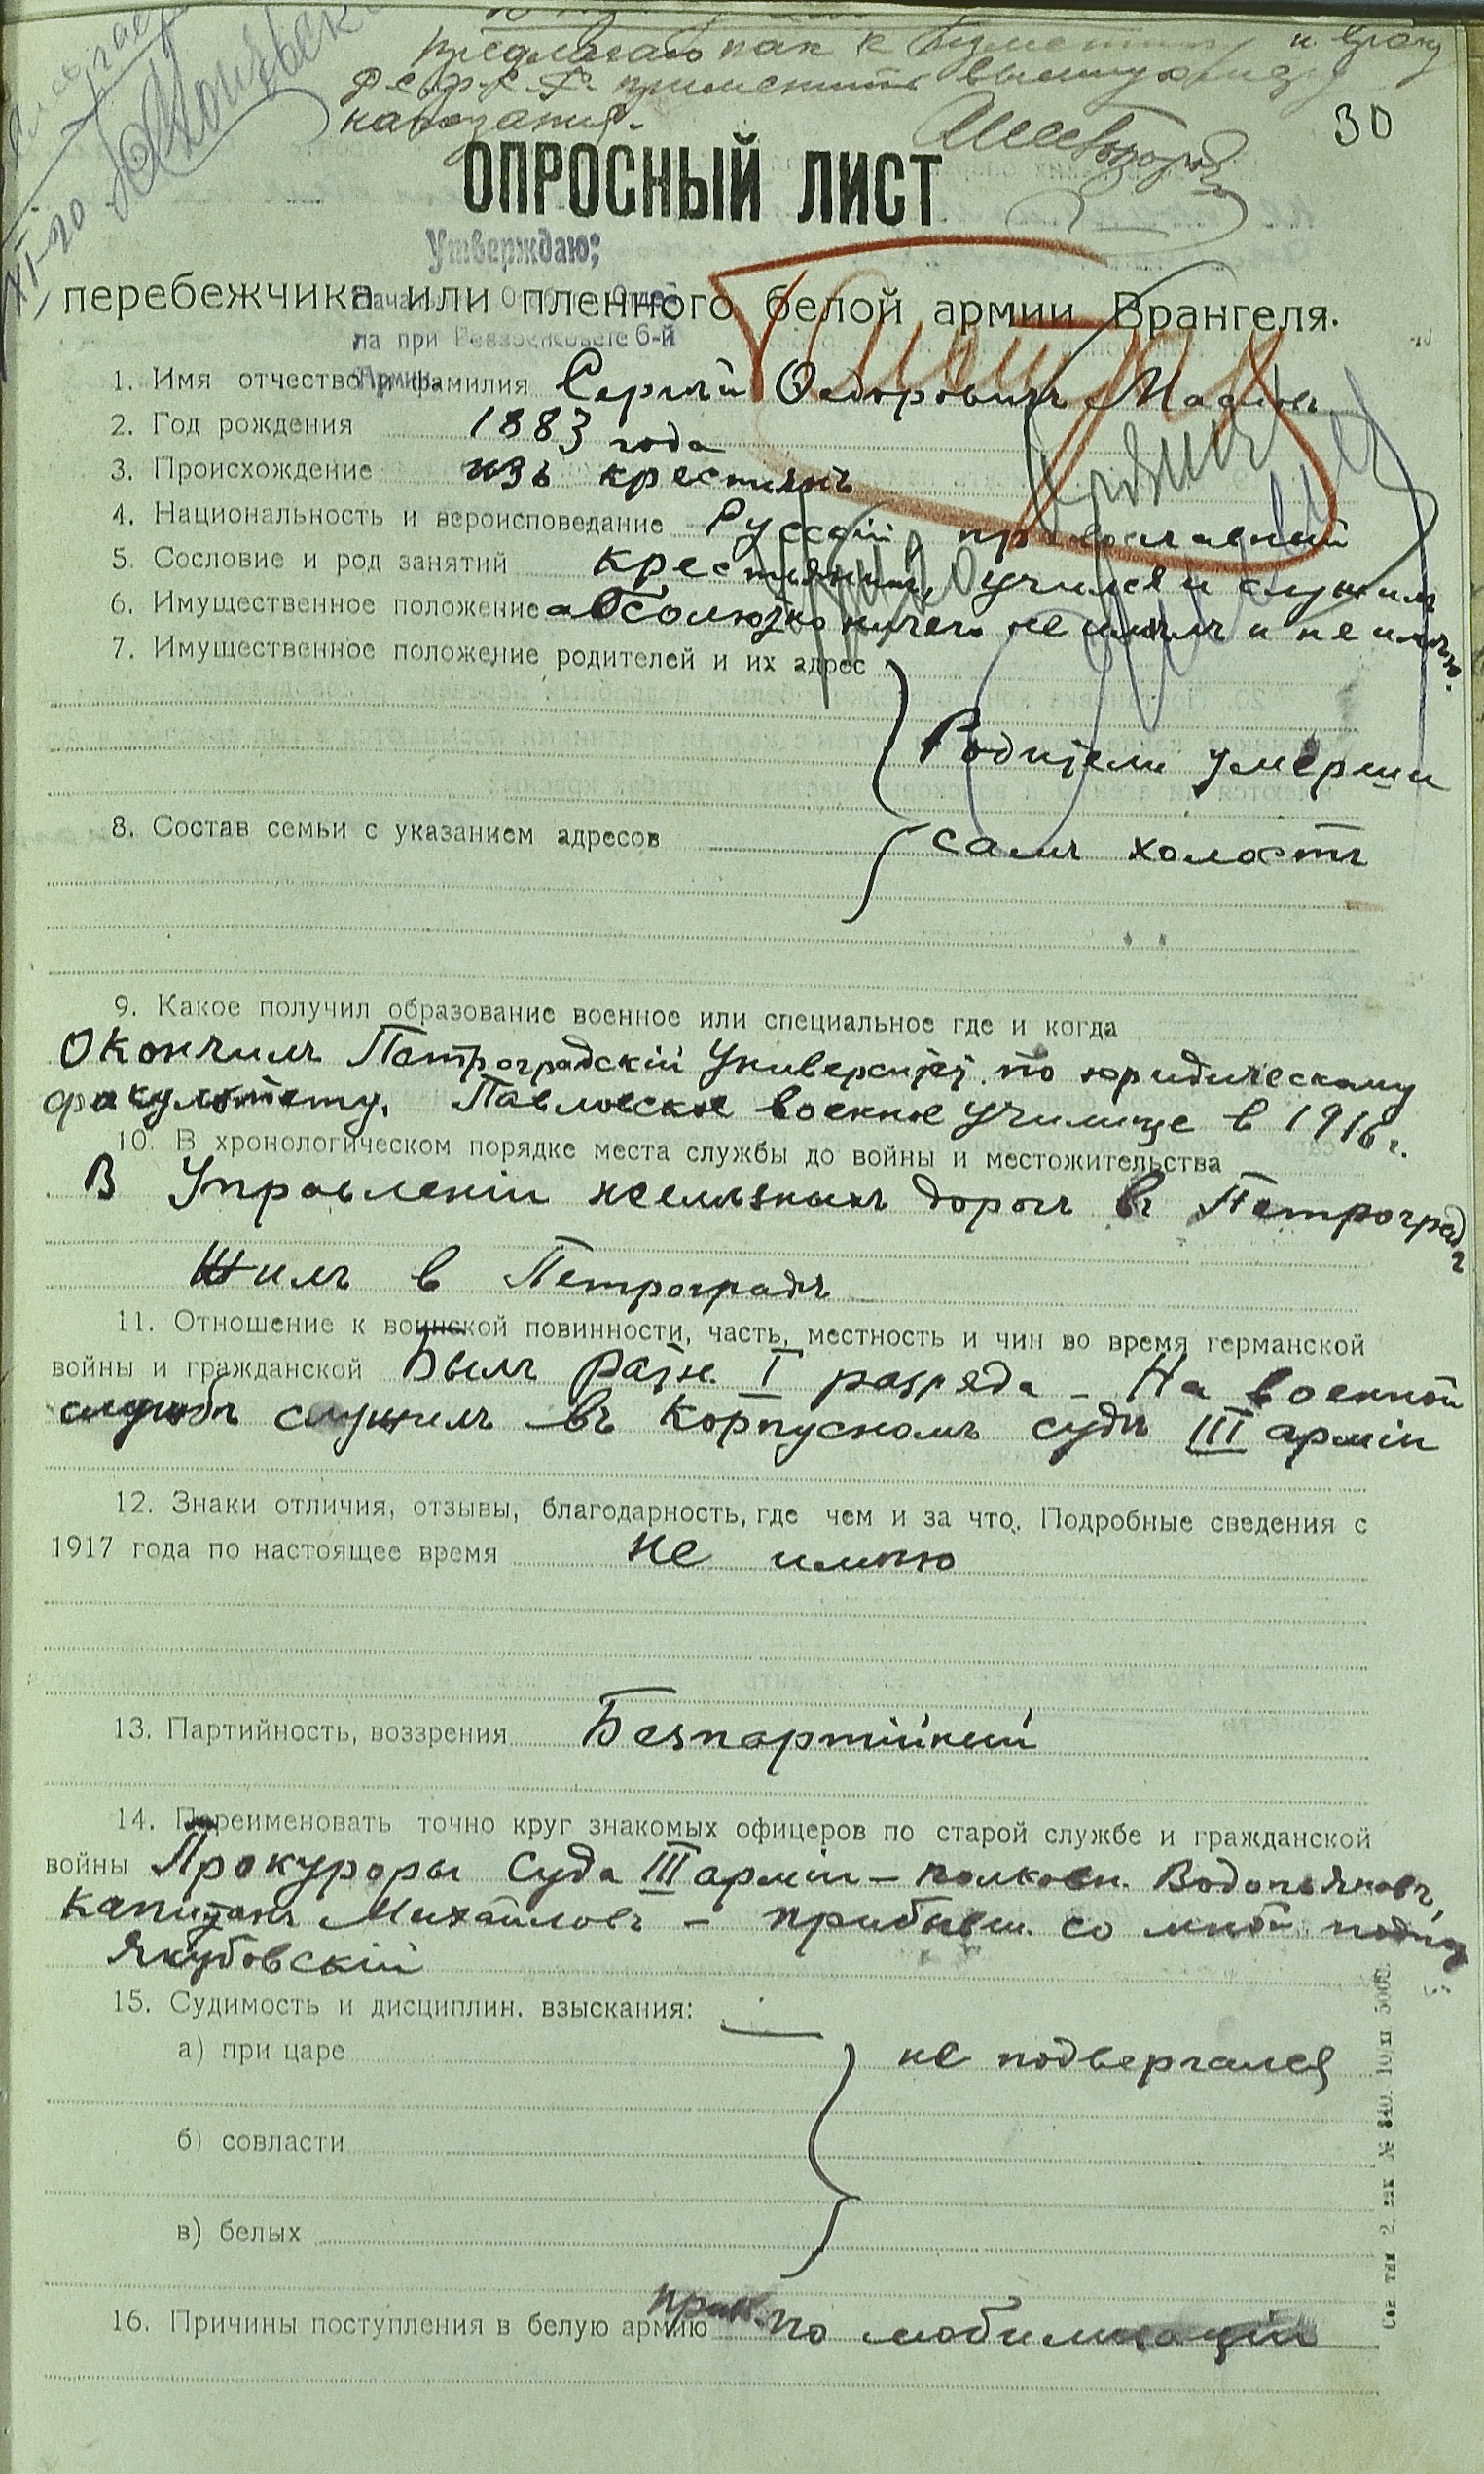 предлагаю как к и врагу
Р.С.Ф.С.Р. применить высшую меру
наказания.
30
XI-20
ОПРОСНЫЙ ЛИСТ
Утверждаю:
перебежчика или пленного белой армии Врангеля.
ла при Реввоенсовете 6-й
Армии
1. Имя отчество и фамилия Сергѣй Федоровичъ
2. Год рождения 1883 года
3. Происхождение изъ крестьянъ
4. Национальность и вероисповедание Русскій, православный
5. Сословие и род занятий крестьянинъ, учился и служилъ
6. Имущественное положение абсолютно ничего не имѣлъ и не имѣю.
7. Имущественное положение родителей и их адрес
Родители умерши
8. Состав семьи с указанием адресов самъ холостъ
9. Какое получил образование военное или специальное где и когда
Окончилъ Петроградскій Университет. по юридическому
факультету. Павловское военное училище в 1916 г.
10. В хронологическом порядке места службы до войны и местожительства
В Управленіи желѣзныхъ дорогъ въ Петроградѣ
Жилъ в Петроградѣ
11. Отношение к воинской повинности, часть, местность и чин во время германской
войны и гражданской Былъ ратн. I разряда – На военной
службѣ служилъ въ Корпусномъ судѣ III арміи
12. Знаки отличия, отзывы, благодарность, где чем и за что. Подробные сведения с
1917 года по настоящее время не имѣю
13. Партийность, воззрения Безпартійный
14. Переименовать точно круг знакомых офицеров по старой службе и гражданской
войны Прокуроры Суда III арміи – полковн. Водопьяновъ,
капитанъ Михайловъ – прибывш. со мной
Якубовскій
15. Судимость и дисциплин. взыскания:
а) при царе не подвергался
б) совласти
в) белых
16. Причины поступления в белую армию по мобилизаціи